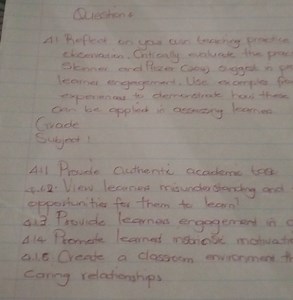 Question 4
4.1 Reflect on your own teaching practice
observation. Critically evaluate the
Skinner and suggest in
learner engagement. Use examples
experiences to demonstrate how these
can be applied in assessing learner
Grade
Subject:
4.1.1 Provide authentic academic task
4.1.2 View learners misunderstanding and
opportunities for them to learn
4.1.3 Provide learners engagement in
4.1.4 Promote learners
4.1.5 Create a classroom environment
Caring relationships